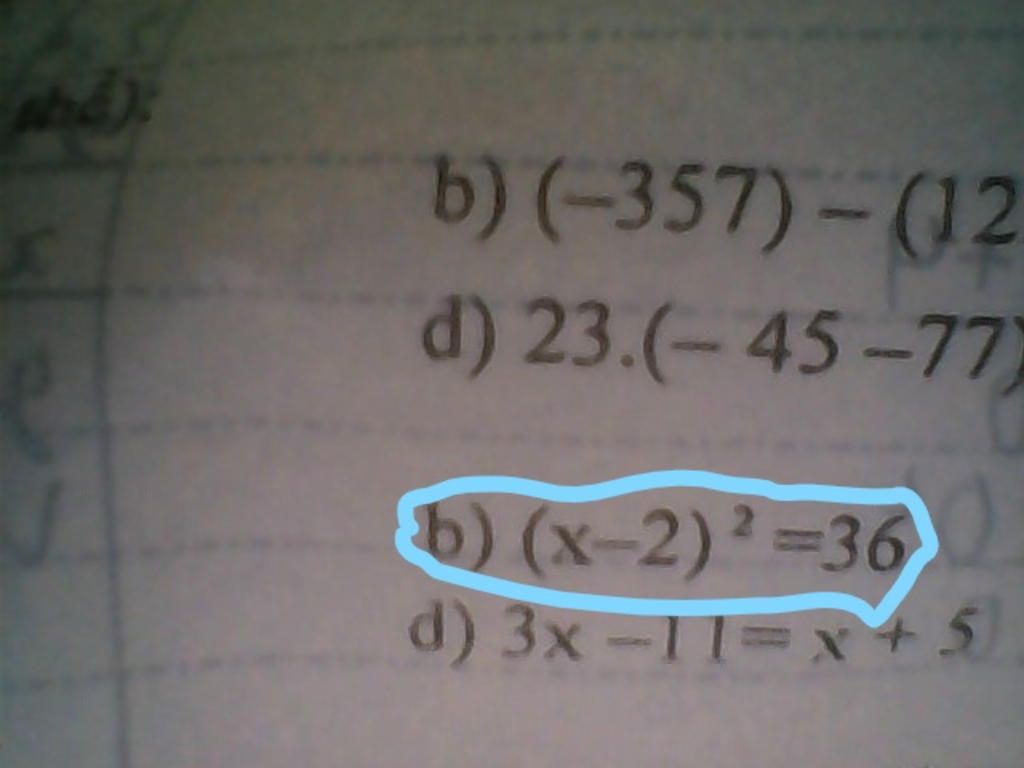 b) (−357) − (12
d) 23.(− 45 −77)
b) (x−2) ² =36
d) 3x −11= x + 5